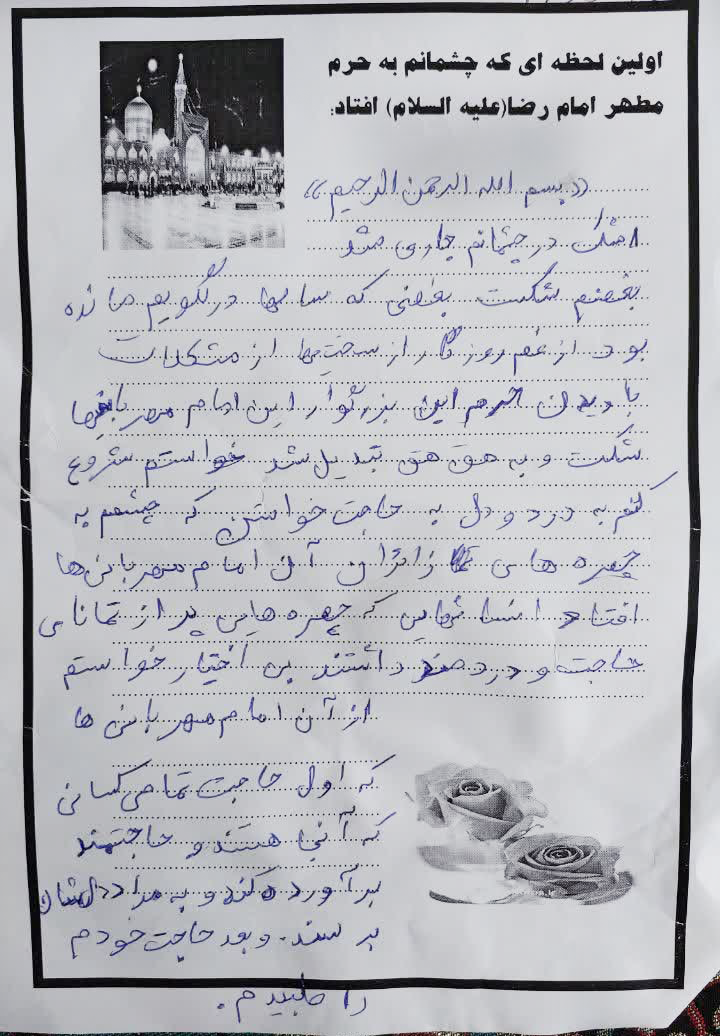 اولین لحظه ای که چشمانم به حرم
مطهر امام رضا(علیه السلام) افتاد:
«بسم الله الرحمن الرحیم»
اشک در چشمانم جاری شد
بغضم شکست بغضی که سالها در گلویم مانده
بود از غم روزگار از سختیها از مشکلات
با دیدن حرم این بزرگوار این امام مهربانیها
شکست و به هق هق تبدیل شد خواستم شروع
کنم به درد و دل به حاجت خواستن که چشمم به
چهره های زائران آن امام مهربانی‌ها
افتاد انسانهایی که چهره هایی پر از تمنای
حاجت و درد داشتند بی اختیار خواستم
از آن امام مهربانی ها
که اول حاجت تمامی کسانی
که آنجا هستند و حاجتمند
برآورده کند و به مراد دلشان
برسند. و بعد حاجت خودم
را طلبیدم.